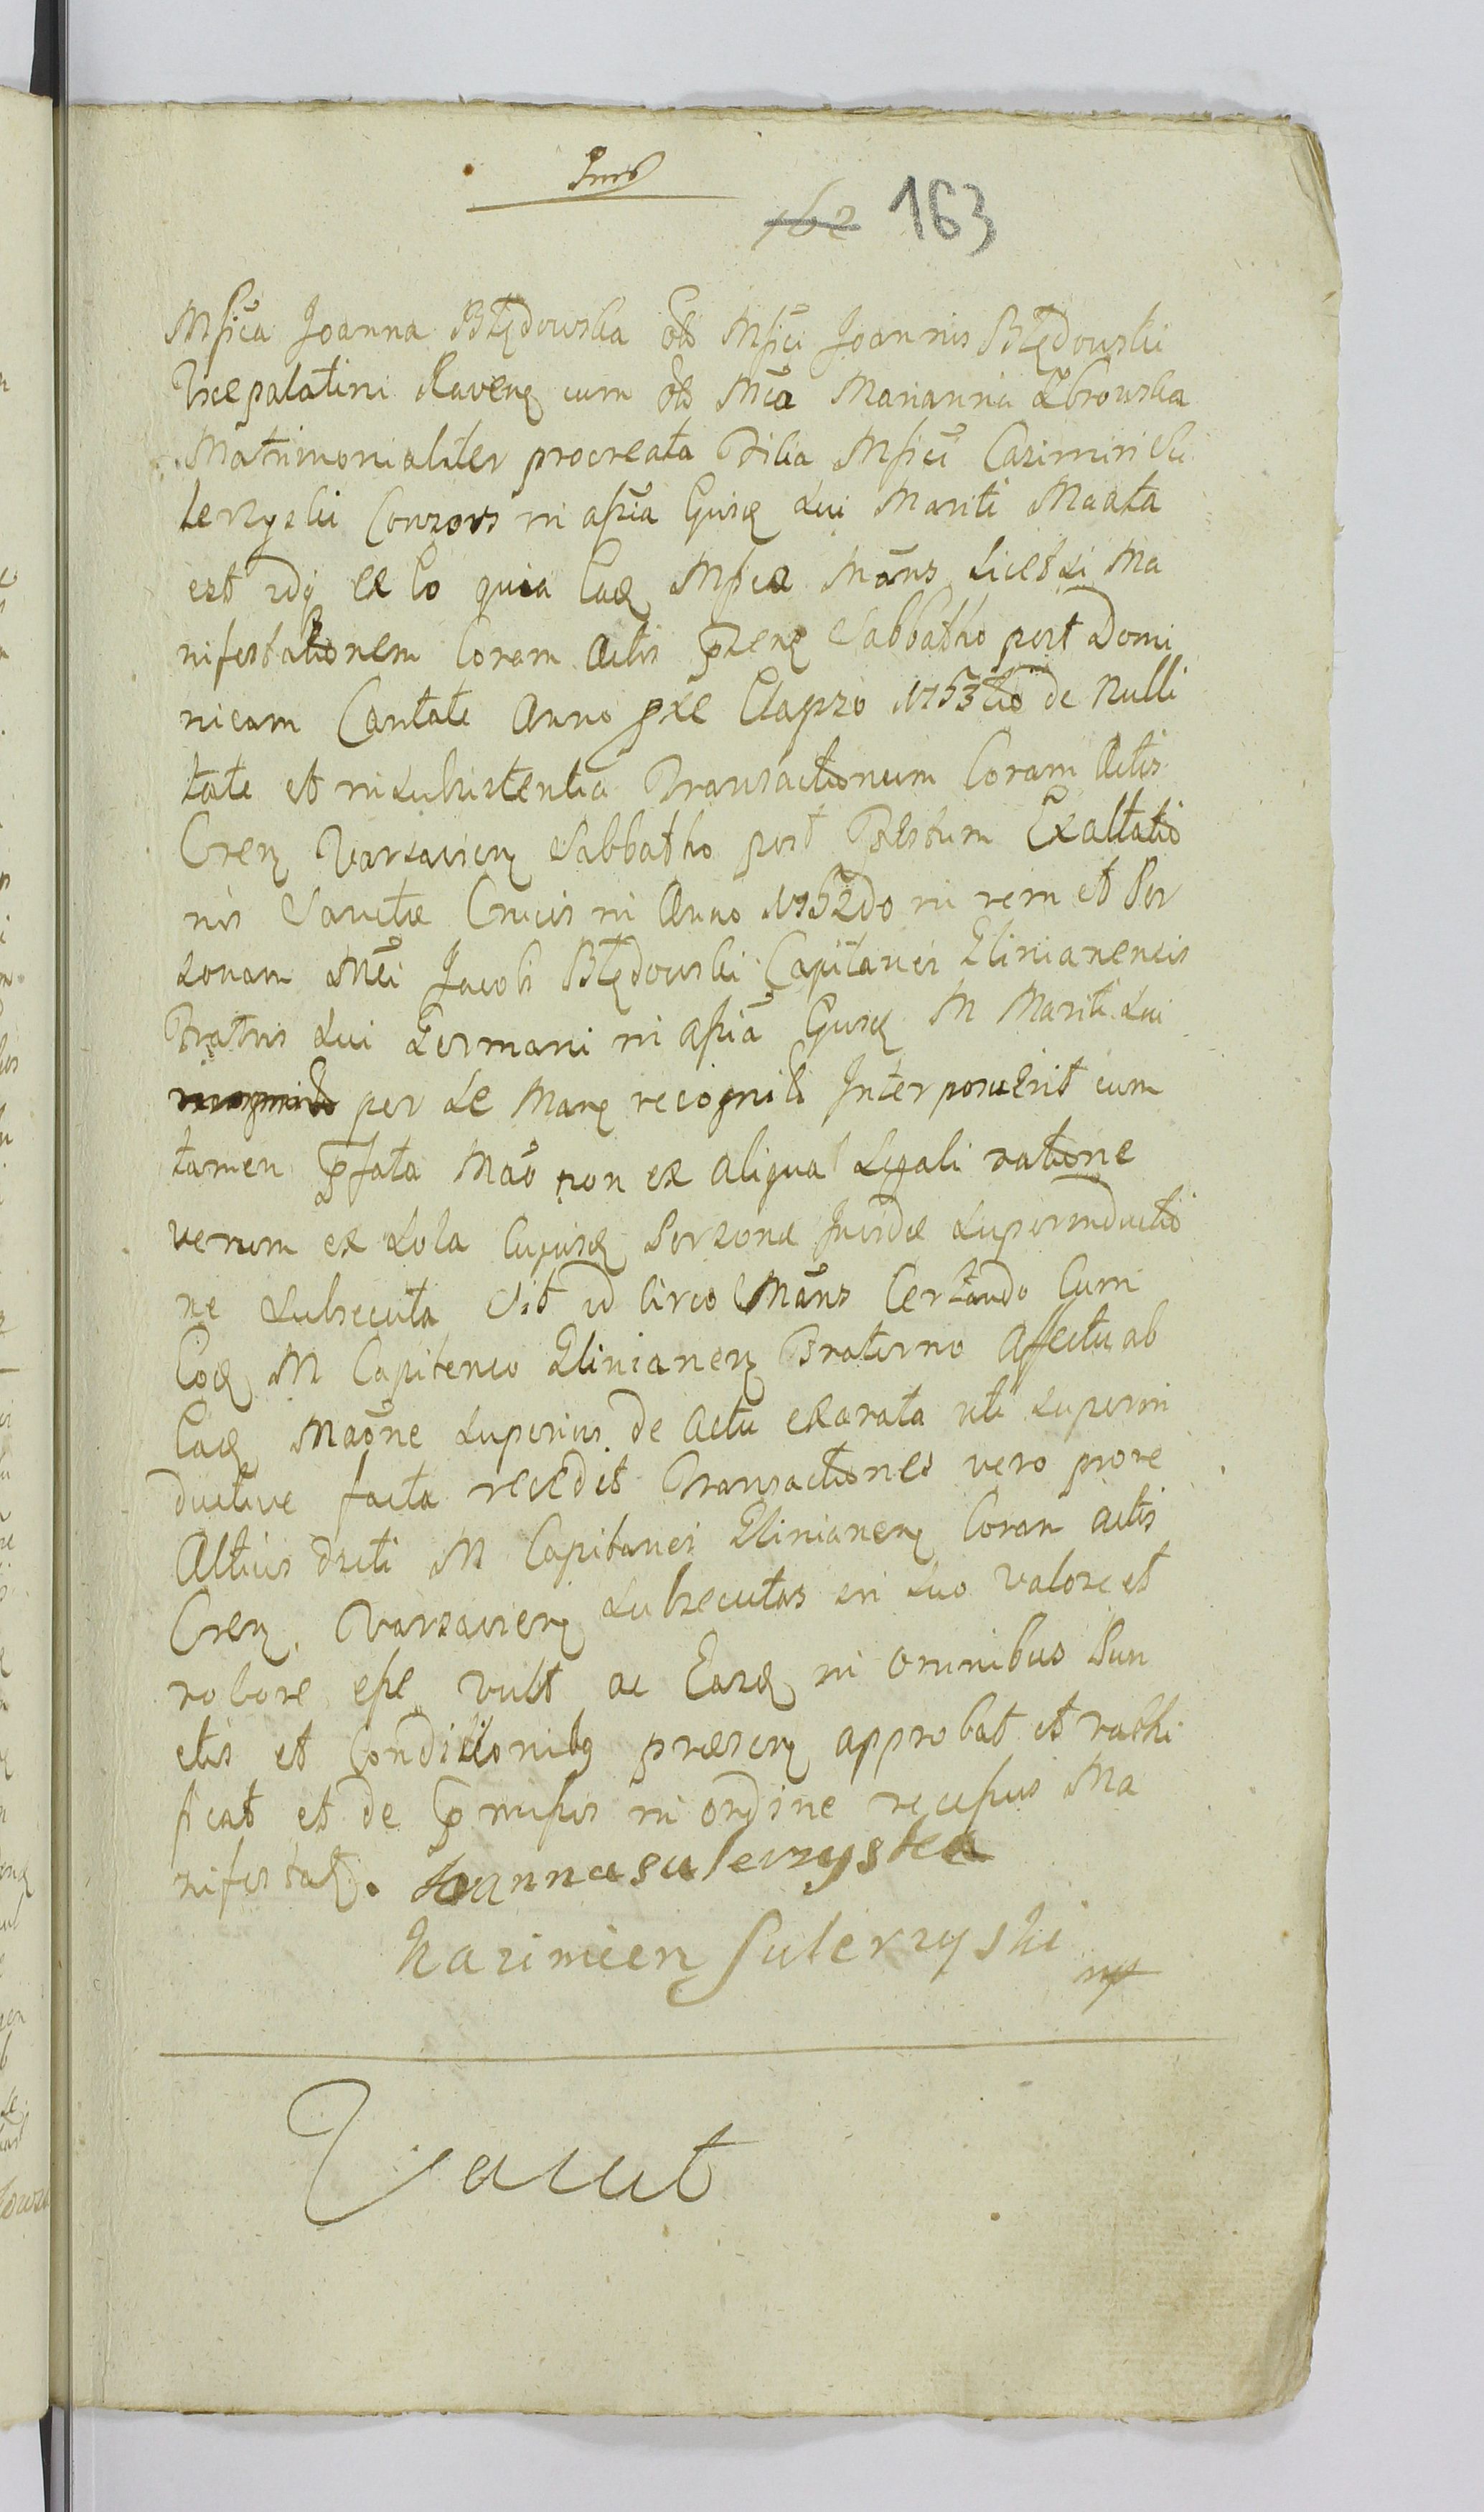 162 163
Mfica Joanna Błędowska olb Mfici Joannis Błędowski
Vicepalatini Ravenẹ cum olb Mca Marianna Zbrowska
Matrimonialiter procreata Filia Mfici Casimiri Su
lerzyski Consors in assia Ejusẹ sui Mariti Maata
est idq ex Eo quia Eaẹ Mfica Mans licet si Ma
nifestationem Coram Actis præsenẹ Sabbatho post Domi
nicam Cantate Anno pxe Elapso 1753tio de Nulli
tate et insubsistentia Transactionum Coram Actis
Crenẹ Varsavienẹ Sabbatho post Festum Exaltatio
nis Sanctæ Crucis in Anno 1752do in rem et Per
sonam Mci Jacobi Błędowski Capitanei Zlinianensis
Fratris sui Germani in assia Ejusẹ M Mariti sui
per se Manẹ recognib Interposuerit cum
tamen pfata Mao non ex aliqua Legali ratione
verum ex sola Cujusẹ Personæ Jnvidæ superinductio
ne subsecuta sit id circo Mans Certando Cum
Eoẹ M Capitaneo Zlinianenẹ Fraterno Affectu ab
Eaẹ Maone superius de actu exarata uti superin
ductive facta recedit Transactiones vero prove
Altius dicti M Capitanei Zlinianenẹ Coram actis
Crenẹ Varsavienẹ subsecutas in suo valore et
robore esse vult ac Easẹ in omnibus Pun
ctis et Conditionibq præsenẹ approbat et rathi
ficat et de pmissis in ordine recessus Ma
nifestatẹ. Joanna sulerzyska
Kazimierz Sulerzyski mp
Vacat